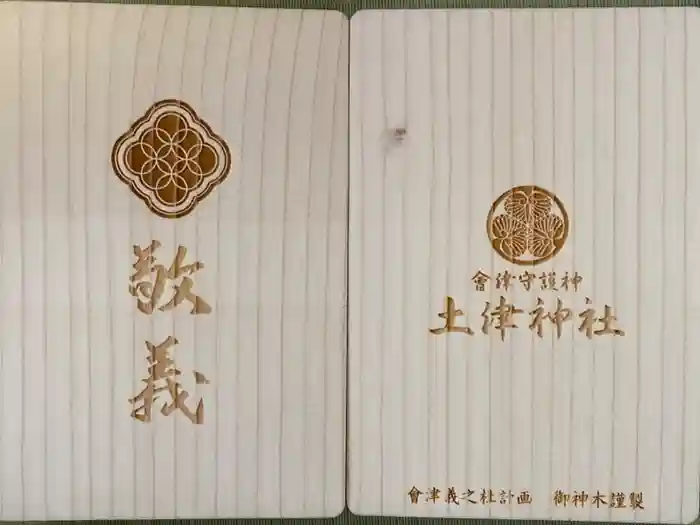 敬義
會津守護神
土津神社
會津義之社計画　御神木謹製